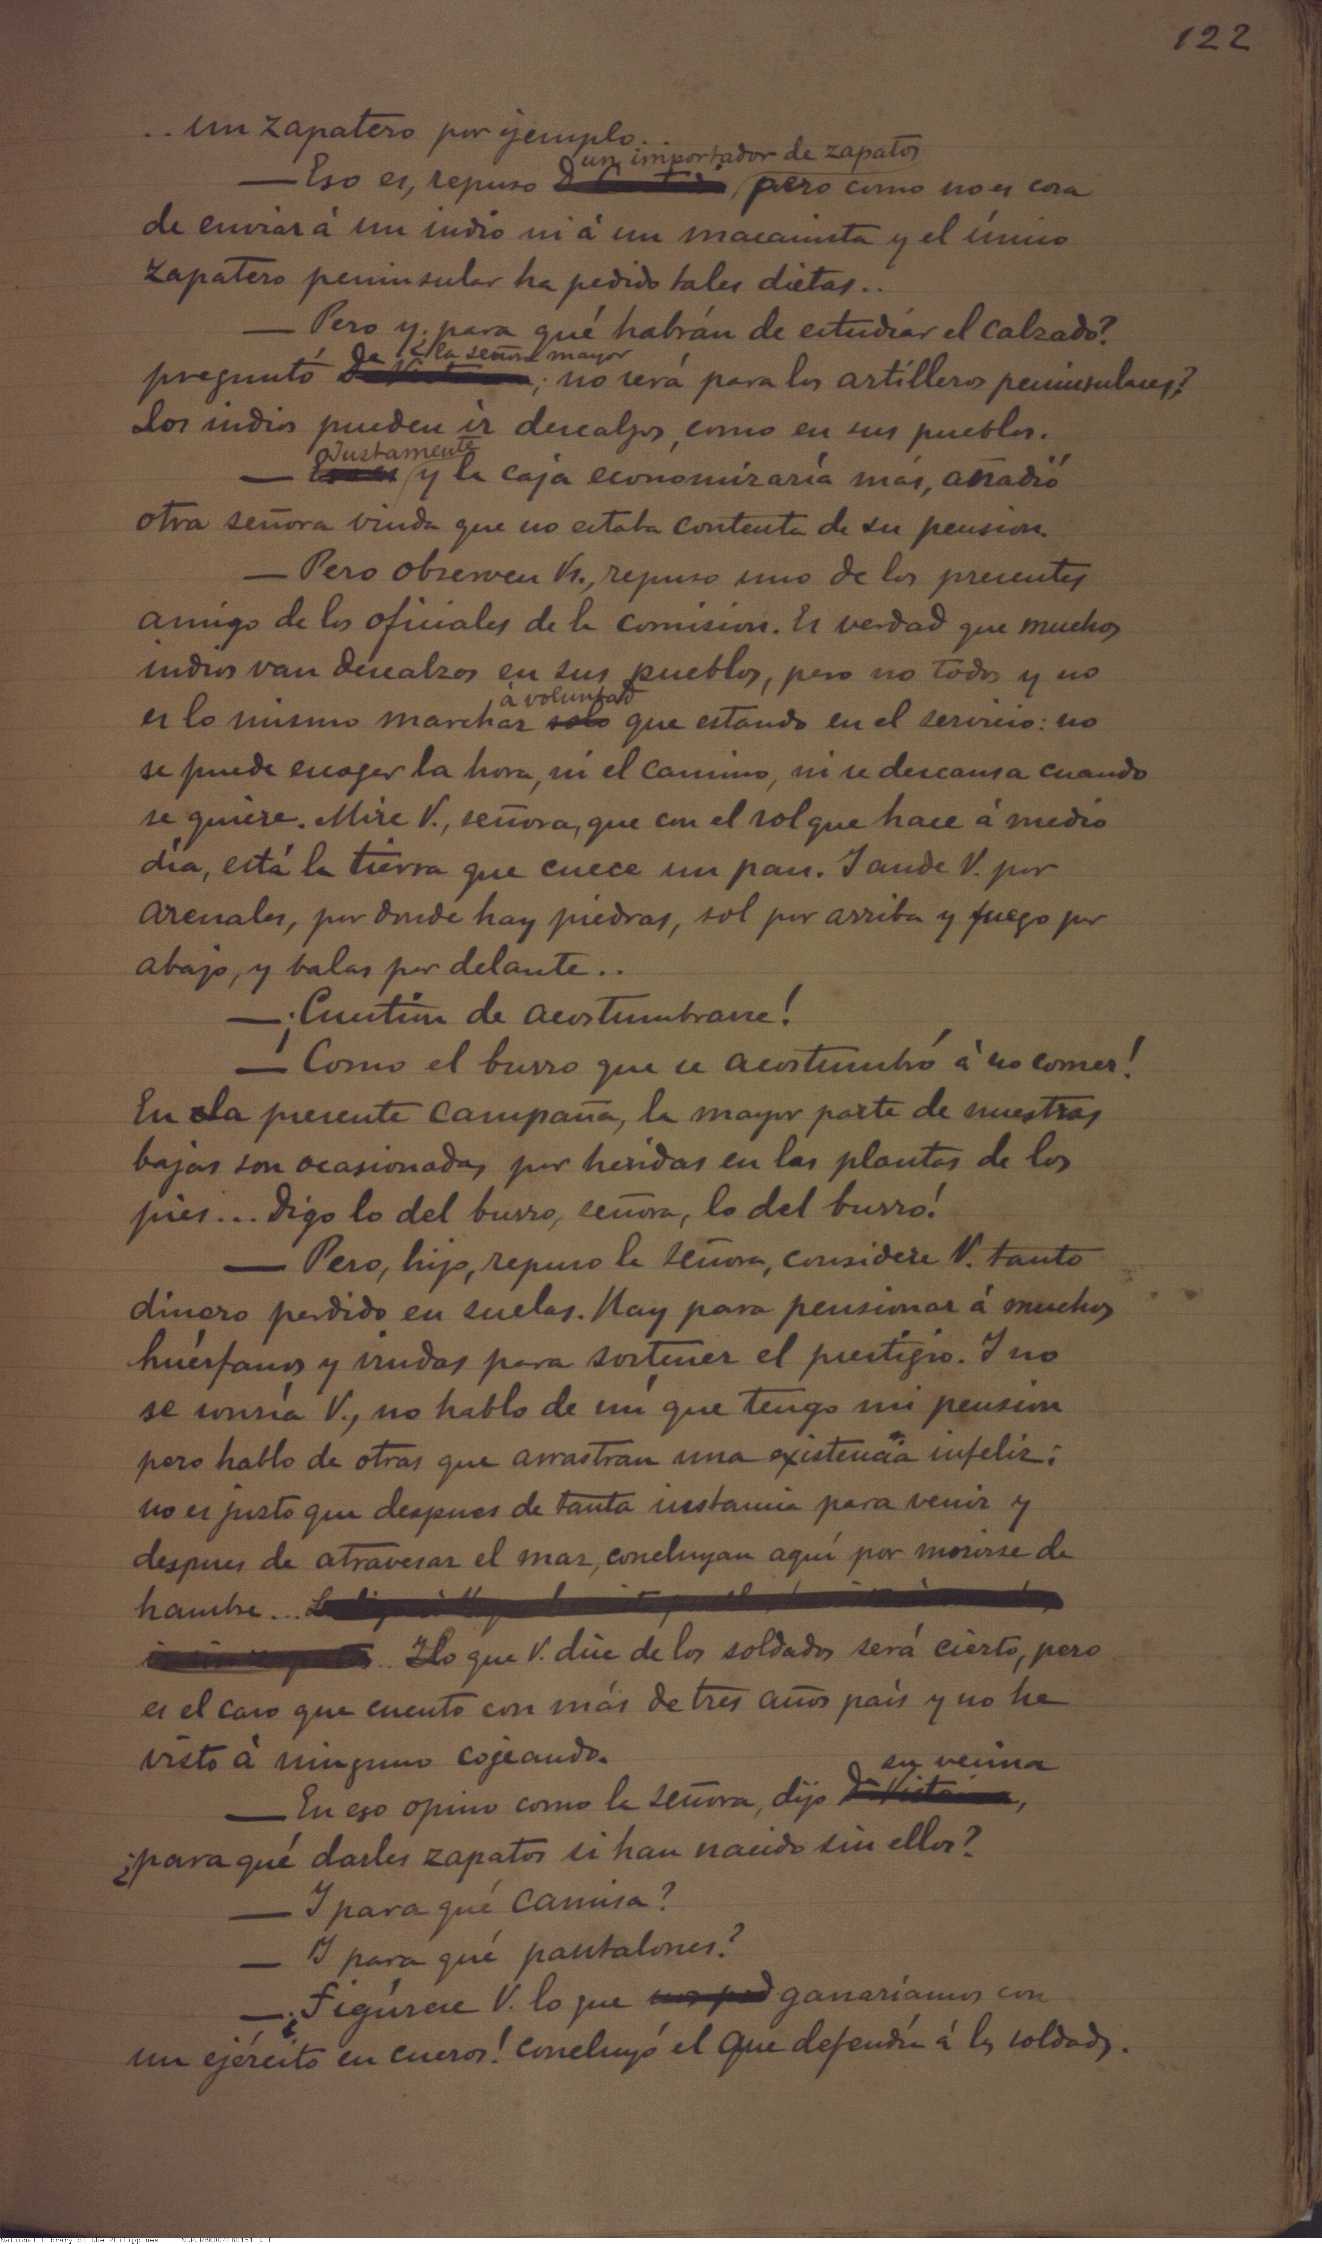 122
..un zapatero por ejemplo..
un importador de zapatos
—Eso es, repuso pero como no es cosa
de enviar á un indio ni á un macanista y el único
zapatero peninsular ha pedido tales dietas..
— Pero y para qué habrán de estudiar el calzado?
la señora mayor
preguntó ; no será para los artilleros peninsulares?
Los indios pueden ir descalzos, como en sus pueblos.
Justamente
— y la caja economizaría más, añadió
otra señora viuda que no estaba contenta de su pension.
— Pero observen Vs., repuso uno de los presentes
amigo de los oficiales de la comision. Es verdad que muchos
indios van descalzos en sus pueblos, pero no todos y no
á voluntad
es lo mismo marchar solo que estando en el servicio: no
se puede escoger la hora, ni el camino, ni se descansa cuando
se quiere. Mire V., señora, que con el sol que hace á medio
día, está la tierra que cuece un pan. Y ande V. por
arenales, por donde hay piedras, sol por arriba y fuego por
abajo, y balas por delante..
—¡Cuestion de acostumbrarse!
—¡Como el burro que se acostumbró á no comer!
En la presente campaña, la mayor parte de nuestras
bajas son ocasionadas por heridas en las plantas de los
piés... Digo lo del burro, señora, lo del burro!
— Pero, hijo, repuso la señora, considere V. tanto
dinero perdido en suelas. Hay para pensionar á muchos
huérfanos y viudas para sostener el prestigio. Y no
se sonría V., no hablo de mí que tengo mi pension
pero hablo de otras que arrastran una existencia infeliz;
no es justo que despues de tanta instancia para venir y
despues de atravesar el mar, concluyan aquí por morirse de
hambre...
Y lo que V. dice de los soldados será cierto, pero
es el caso que cuento con más de tres años país y no he
visto á ninguno cojeando.
su vecina
— En eso opino como la señora, dijo ,
¿para qué darles zapatos si han nacido sin ellos?
— Y para qué camisa?
— Y para qué pantalones?
—¡Figúrese V. lo que ganaríamos con
un ejército en cueros! concluyó el que defendía á los soldados.